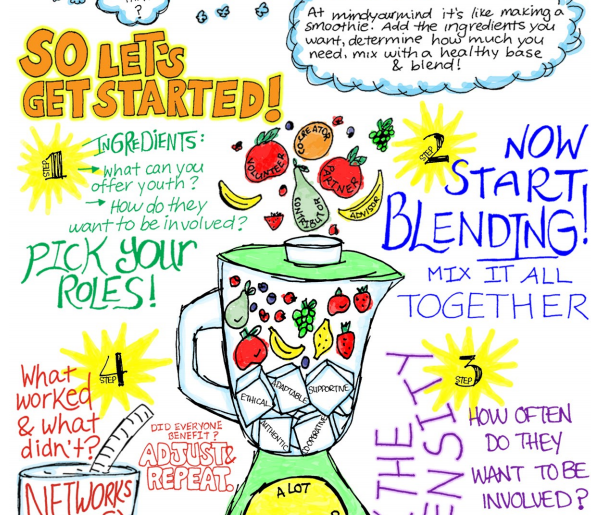 ?
At mindyourmind it's like making a
smoothie. Add the ingredients you
want, determine how much you
need, mix with a healthy base
& blend!
SO LET'S
GET STARTED!
STEP 1
INGREDIENTS:
→ what can you
offer youth?
→ How do they
want to be involved?
PICK YOUR
ROLES!
CO-CREATOR
VOLUNTEER
PARTNER
CONTRIBUTOR
ADVISOR
STEP 2
NOW
START
BLENDING!
MIX IT ALL
TOGETHER
ETHICAL
ADAPTABLE
SUPPORTIVE
AUTHENTIC
STEP 3
THE
HOW OFTEN
DO THEY
WANT TO BE
INVOLVED?
STEP 4
What
worked
& what
didn't?
DID EVERYONE
BENEFIT?
ADJUST &
REPEAT.
NETWORKS
A LOT